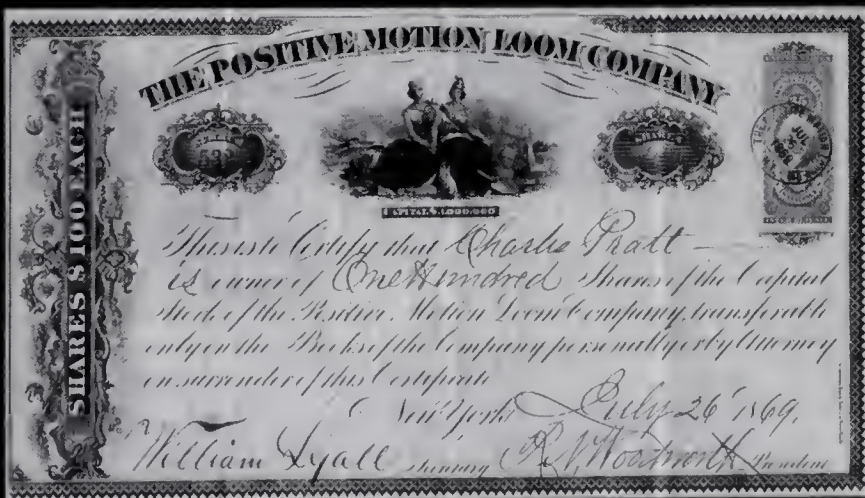 THE POSITIVE MOTION LOOM COMPANY
SHARES $100 EACH
SHARES
CAPITAL $1,000,000
This is to Certify that Charles Pratt
is owner of One Hundred Shares of the Capital
Stock of the Positive Motion Loom Company, transferable
only on the Books of the Company personally or by Attorney
on surrender of this Certificate
New York July 26 1869.
William Lyall President